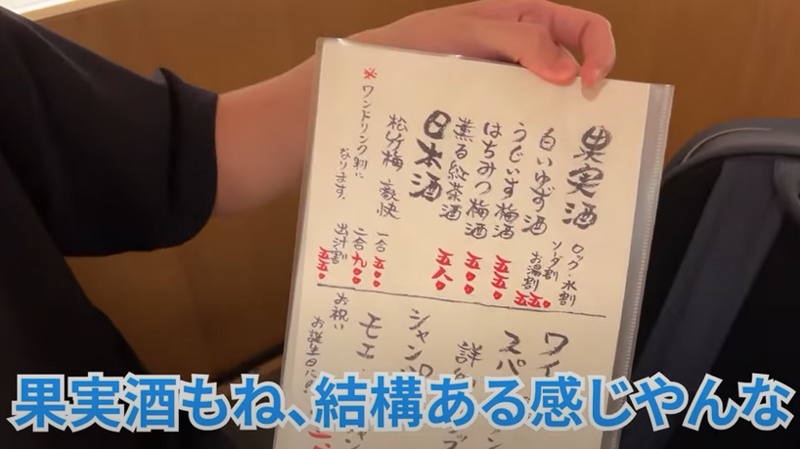 果実酒
ロック・水割
ソーダ割
お湯割
白いゆず酒 五五〇
うぐいす梅酒 五五〇
はちみつ梅酒 五〇〇
薫る紅茶酒 五八〇
日本酒
松竹梅 豪快
一合 五〇〇
二合 九〇〇
出汁割 五五〇
※ワンドリンク制になります。
ワイ
スパ
シャン
モエ
お祝い
お誕生日に
果実酒もね、結構ある感じやんな